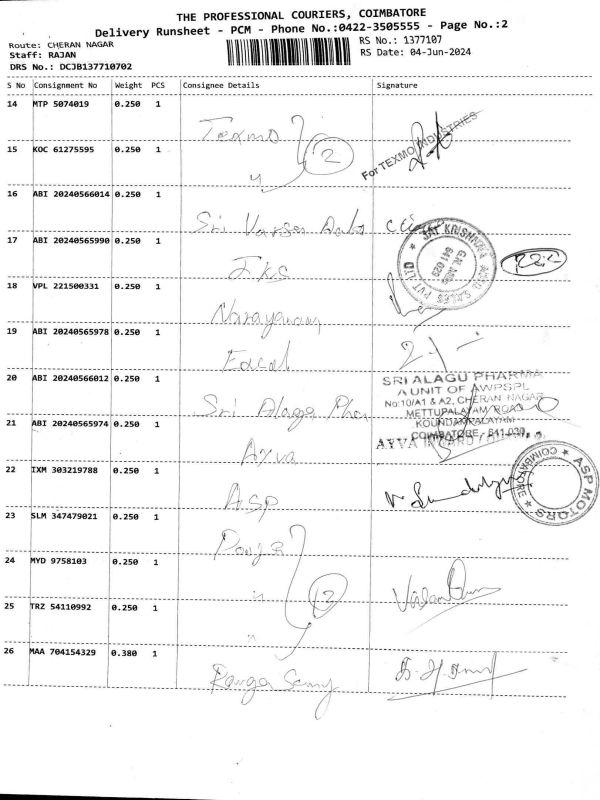 THE PROFESSIONAL COURIERS, COIMBATORE
Delivery Runsheet - PCM - Phone No.:0422-3505555 - Page No.:2
Route: CHERAN NAGAR
RS No.: 1377107
Staff: RAJAN
RS Date: 04-Jun-2024
DRS No.: DCJB137710702
S No Consignment No Weight PCS Consignee Details Signature
14 MTP 5074019 0.250 1
Texmo
For TEXMO INDUSTRIES
15 KOC 61275595 0.250 1
2
16 ABI 20240566014 0.250 1
Sri
17 ABI 20240565990 0.250 1
JKS
SAI KRISHNAA
PVT LTD
G.N. Mills
641 029
18 VPL 221500331 0.250 1
Narayanan
19 ABI 20240565978 0.250 1
20 ABI 20240566012 0.250 1
Sri Alaga Phar
SRI ALAGU PHARMA
A UNIT OF AWPSPL
No:10/A1 & A2, CHERAN NAGAR
METTUPALAYAM ROAD
KOUNDAMPALAYAM
COIMBATORE - 641 030.
21 ABI 20240565974 0.250 1
Ayva
22 IXM 303219788 0.250 1
ASP
ASP MOTORS
COIMBATORE
23 SLM 347479021 0.250 1
24 MYD 9758103 0.250 1
2
25 TRZ 54110992 0.250 1
26 MAA 704154329 0.380 1
Ranga Samy